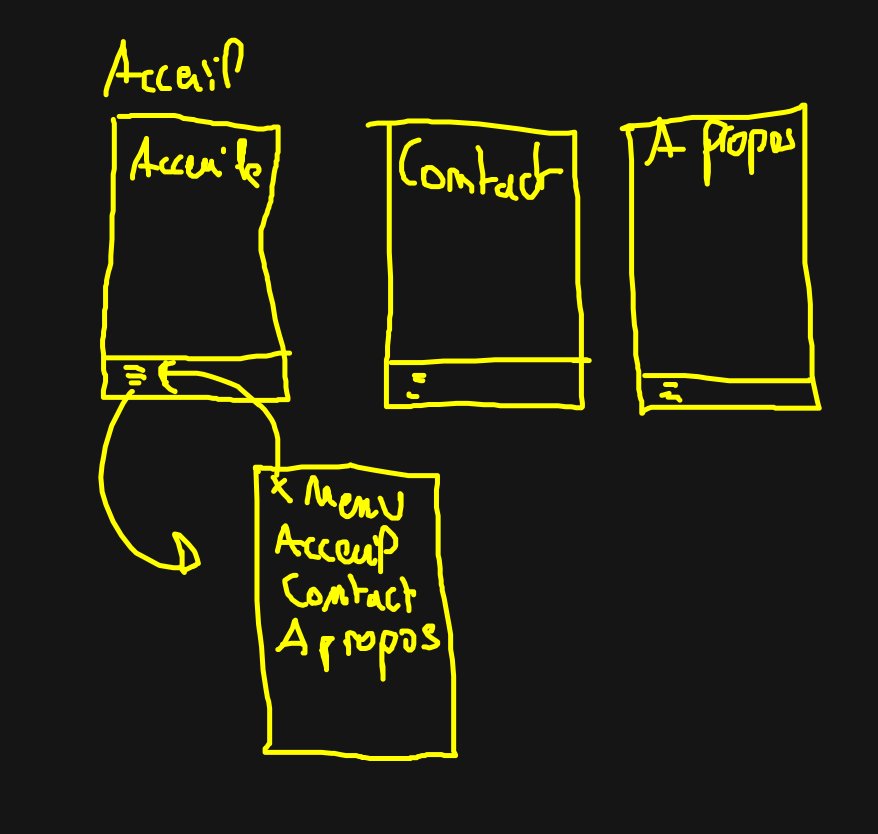 Accueil
Accueil
Contact
A propos
x Menu
Accueil
Contact
A propos